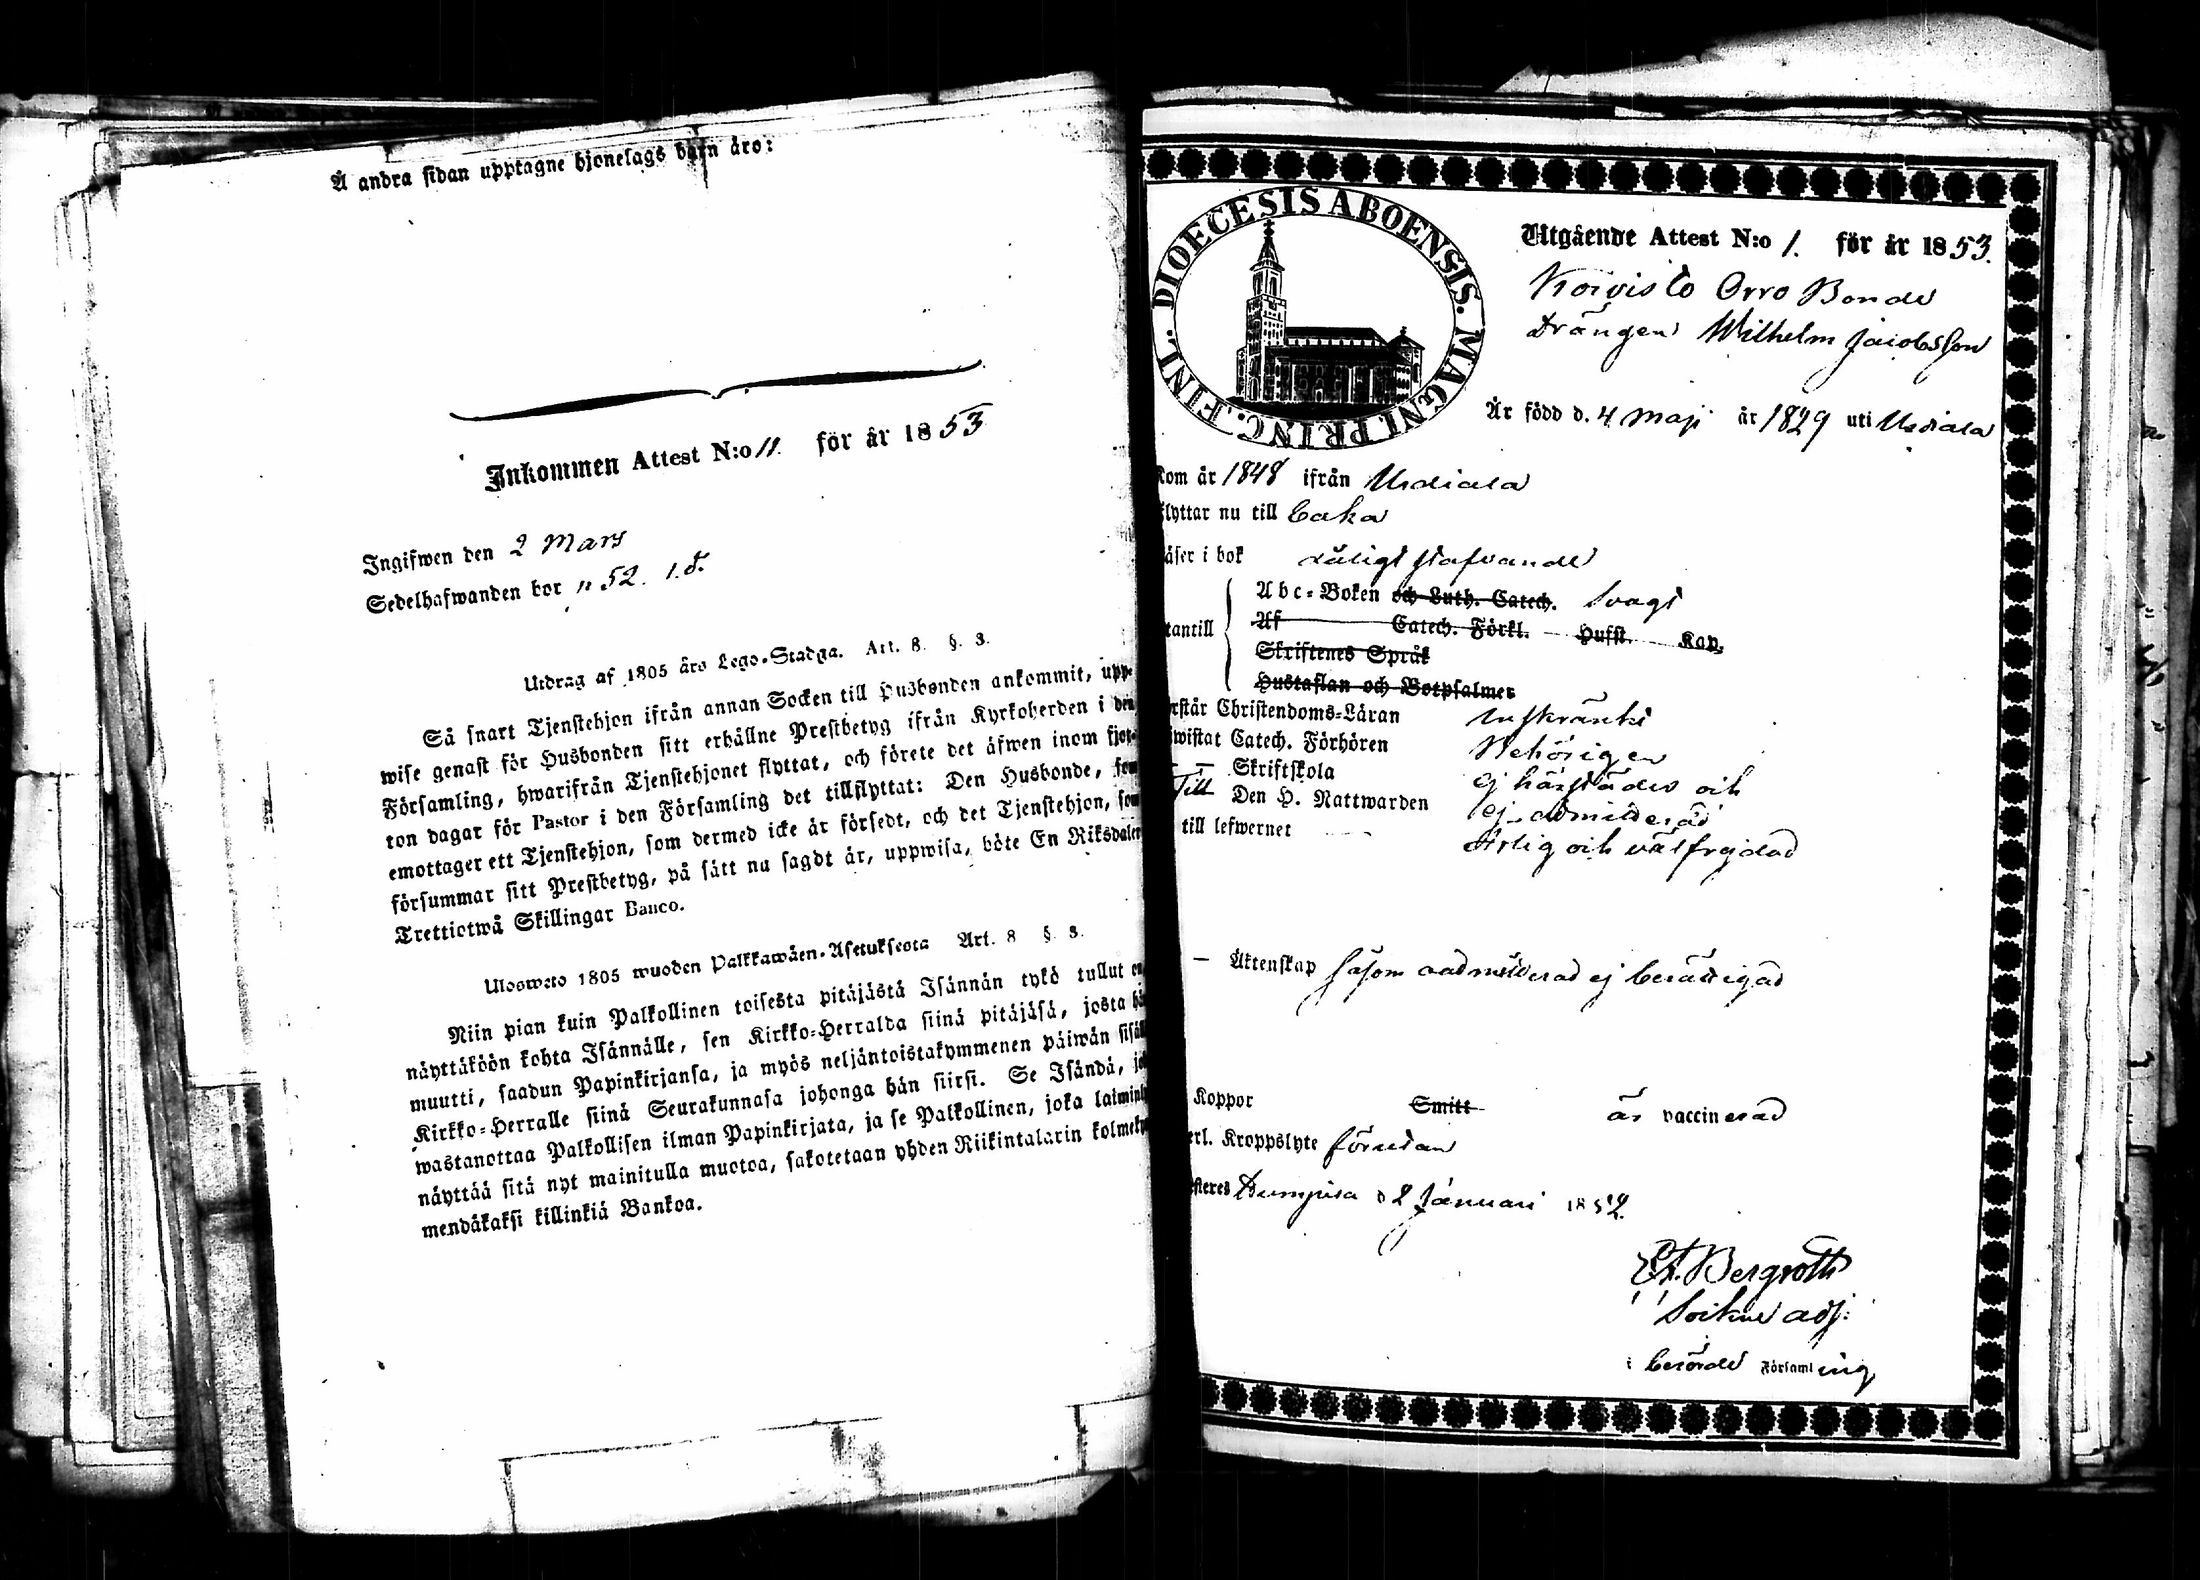 Å andra sidan upptagne hjonelags barn äro:
Inkommen Attest N:o 11. för år 1853
Ingifwen den 2 Mars
Sedelhafwanden bor 52.
Utdrag af 1805 års Lego-Stadga. Art. 8. §. 3.
Så snart Tjenstehjon ifrån annan Socken till Husbonden ankommit, upp-
wise genast för Husbonden sitt erhållne Prestbetyg ifrån Kyrkoherden i den
Församling, hwarifrån Tjenstehjonet flyttat, och förete det äfwen inom fjor-
ton dagar för Pastor i den Församling det tillflyttat: Den Husbonde, som
emottager ett Tjenstehjon, som dermed icke är försedt, och det Tjenstehjon, som
försummar sitt Prestbetyg, på sätt nu sagdt är, uppwisa, böte En Riksdaler
Trettiotwå Skillingar Banco.
Ulosweto 1805 wuoden Palkkawäen-Asetuksesta Art. 8 §. 3.
Niin pian kuin Palkollinen toisesta pitäjästä Isännän tykö tullut on
näyttäköön kohta Isännälle, sen Kirkko-Herralda siinä pitäjäsä, josta hän
muutti, saadun Papinkirjansa, ja myös neljäntoistakymmenen päiwän sisäll
Kirkko-Herralle siinä Seurakunnasa johonga hän siirsi. Se Isändä, jo
wastanottaa Palkollisen ilman Papinkirjata, ja se Palkollinen, joka laiminly
näyttää sitä nyt mainitulla muotoa, sakotetaan yhden Riikintalarin kolmeky
mendäkaksi killinkiä Bankoa.
DIOECESIS ABOENSIS. MAGNI. PRINC. FINL.
Utgående Attest N:o 1. för år 1853.
Koivisto Orro Bonde
Drängen Wilhelm Jacobsson
Är född d. 4 Maji år 1829 uti Urdiala
Kom år 1848 ifrån Urdiala
flyttar nu till
äser i bok stafvande
Abc-Boken och Luth. Catech. svagt
tantill Af Catech. Förkl. Hufst. Kap.
Skriftenes Språk
Hustaflan och Botpsalmer
rstår Christendoms-Läran inskränkt
iwistat Catech. Förhören Behörigen
— — Skriftskola ej härstädes och
Till Den H. Nattwarden ej admitterad
till lefwernet Ärlig och välfrejdad
— Äktenskap såsom oadmitterad ej berättigad
Koppor Smitt är vaccinerad
erl. Kroppslyte förutan
steres d 2 Januari 1852.
Bergroth
Sockne adj:
i berörde Församling